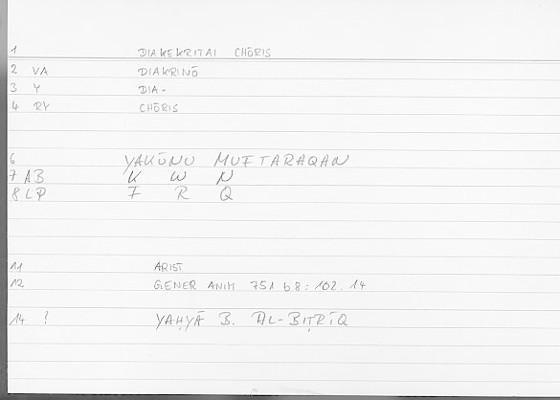 1 DIAKEKRITAI CHŌRIS
2 VA DIAKRINŌ
3 Y DIA-
4 RY CHŌRIS
6 YAKŪNU MUFTARAQAN
7 AB K W N
8 LP F R Q
11 ARIST
12 GENER ANIM 751 b8: 102.14
14 ? YAḤYĀ B. AL-BIṬRĪQ